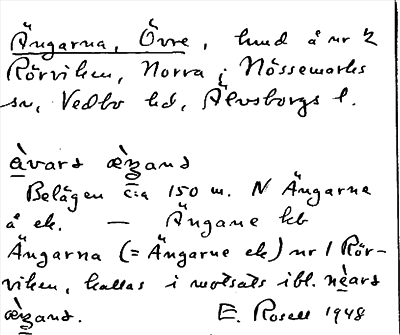 Ängarna, Övre, hmd å nr 2
Rörviken, Norra i Nössemarks
sn, Vedbo hd, Älvsborgs l.
ǻvarə æ̀ŋanə
Belägen c:a 150 m. N Ängarne
å ek. — Ängane hb
Ängarna (= Ängarne ek) nr 1 Rör-
viken, kallas i motsats ibl. nèarə
æ̀ŋanə. E. Rosell 1948